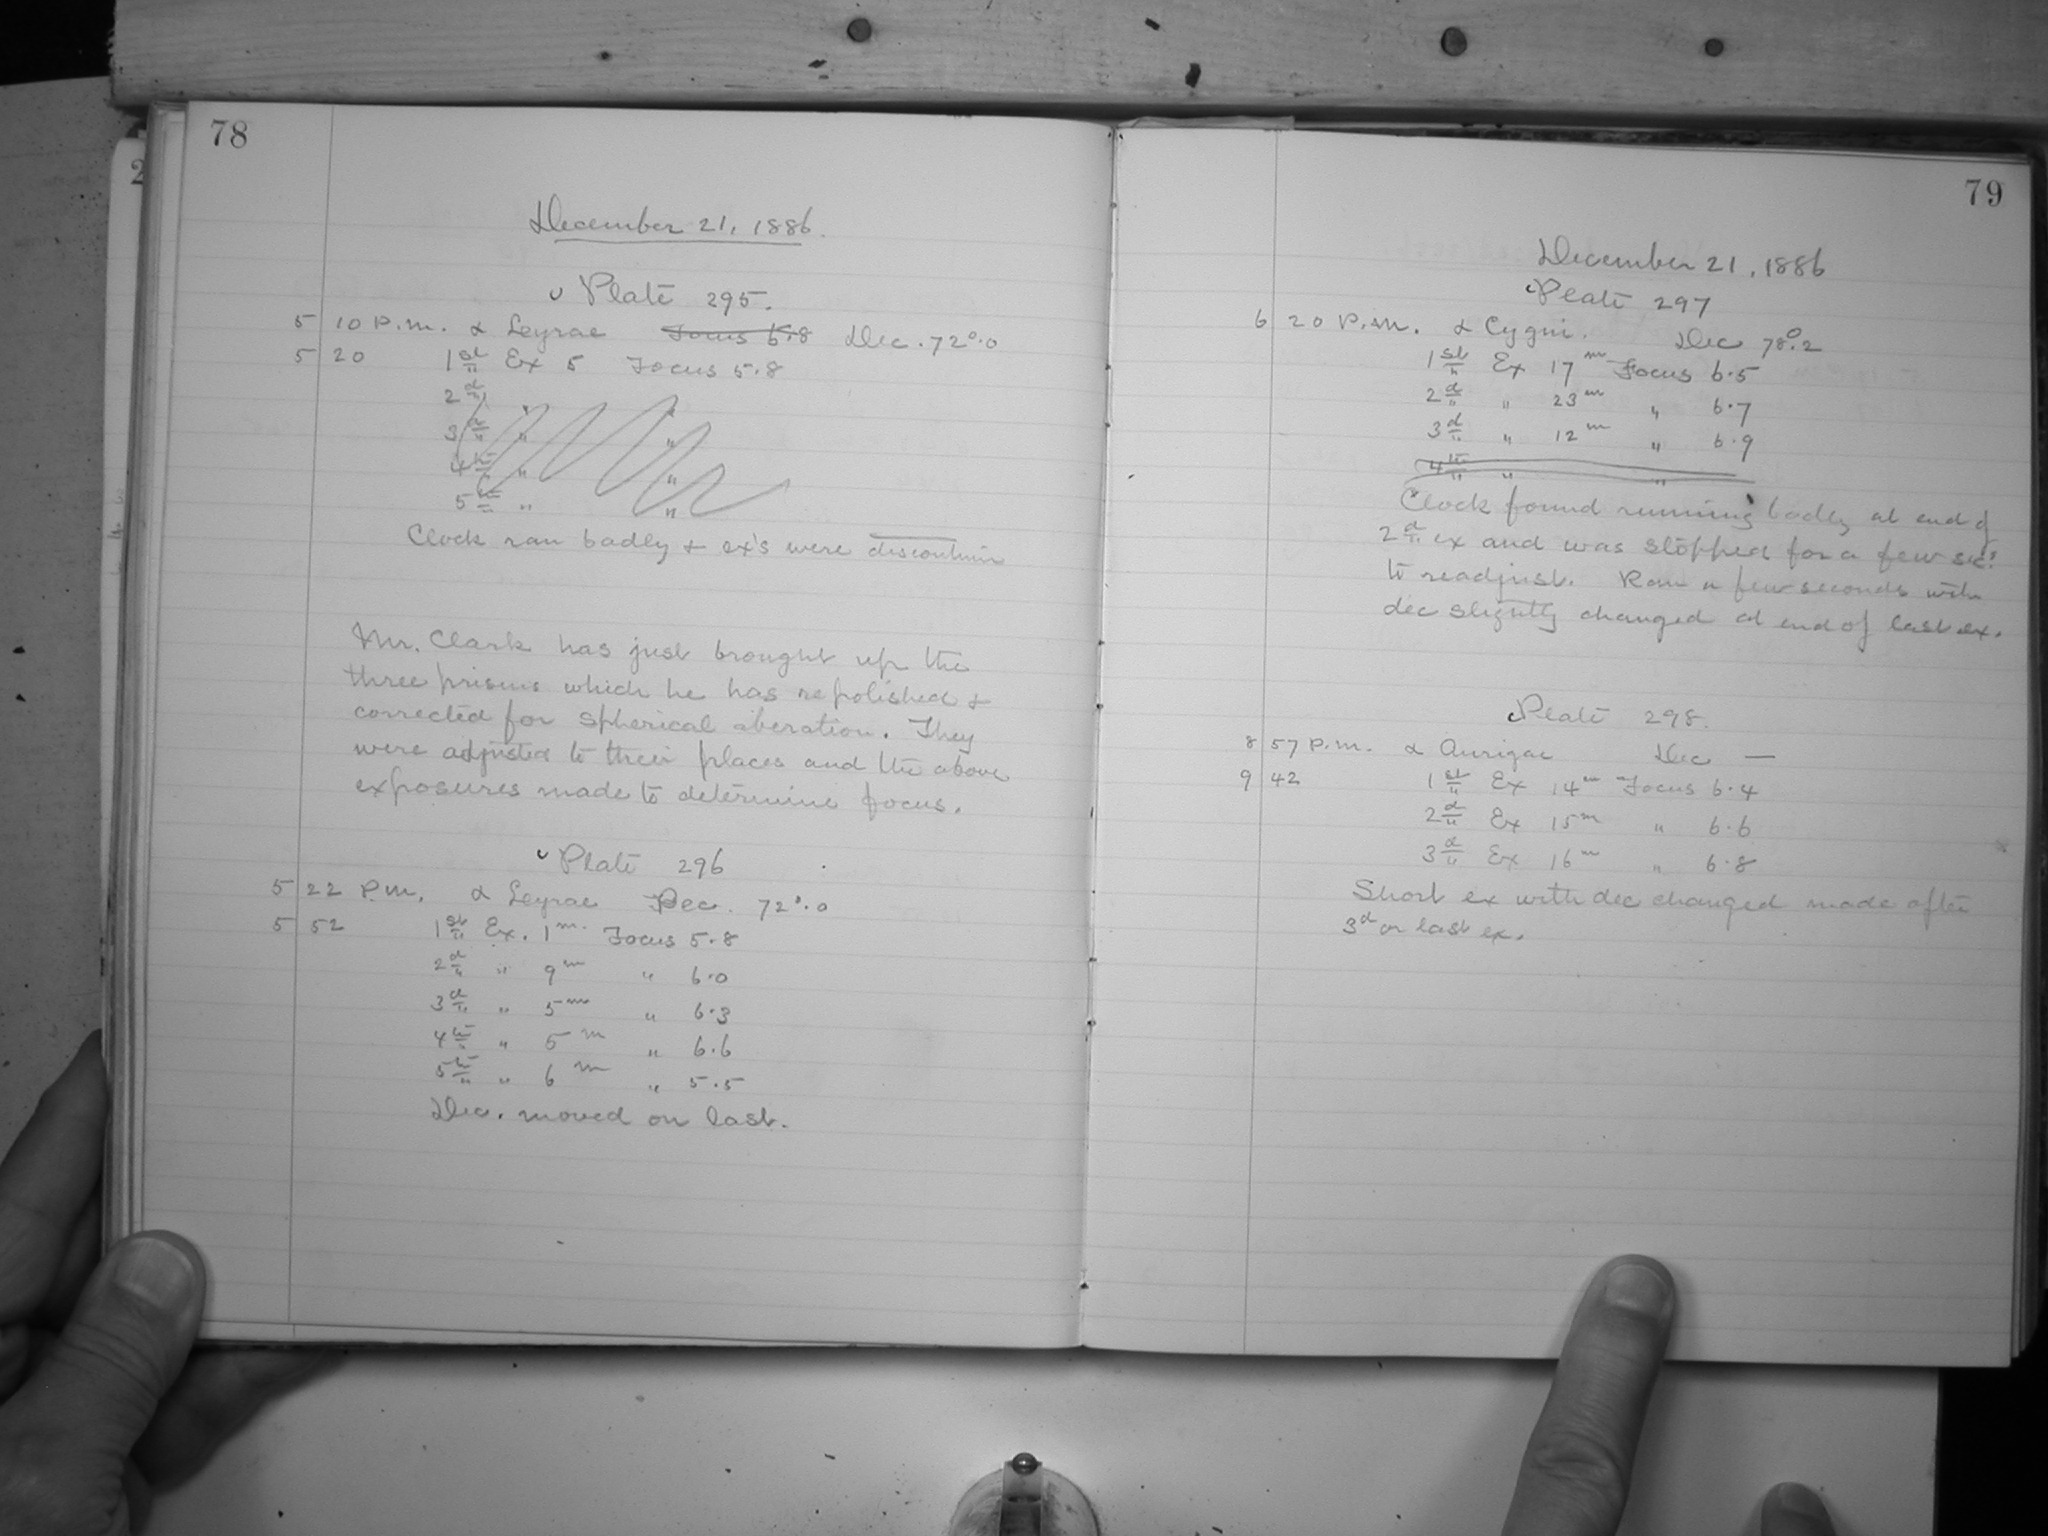 78
December 21, 1886.
Plate 295.
5 10 P.m. α Leyrae Focus 5.8 Dec. 72°.0
5 20 1st Ex 5 Focus 5.8
2d " "
3d " "
4th " "
5th " "
Clock ran badly & ex's were discontin
Mr. Clark has just brought up the
three prisms which he has repolished &
corrected for spherical aberation. They
were adjusted to their places and the above
exposures made to determine focus.
Plate 296
5 22 P.m. α Leyrae Dec. 72°.0
5 52 1st Ex. 1m. Focus 5.8
2d " 9m " 6.0
3d " 5m " 6.3
4th " 5m " 6.6
5th " 6m " 5.5
Dec. moved on last.
79
December 21, 1886
Plate 297
6 20 P.m. α Cygni. Dec 78°.2
1st Ex 17m Focus 6.5
2d " 23m " 6.7
3d " 12m " 6.9
4th " "
Clock found running badly at end of
2d ex and was stopped for a few secs
to readjust. Ran a few seconds with
dec slightly changed at end of last ex.
Plate 298.
8 57 P.m. α Aurigae Dec —
9 42 1st Ex 14m Focus 6.4
2d Ex 15m " 6.6
3d Ex 16m " 6.8
Short ex with dec changed made after
3d or last ex.